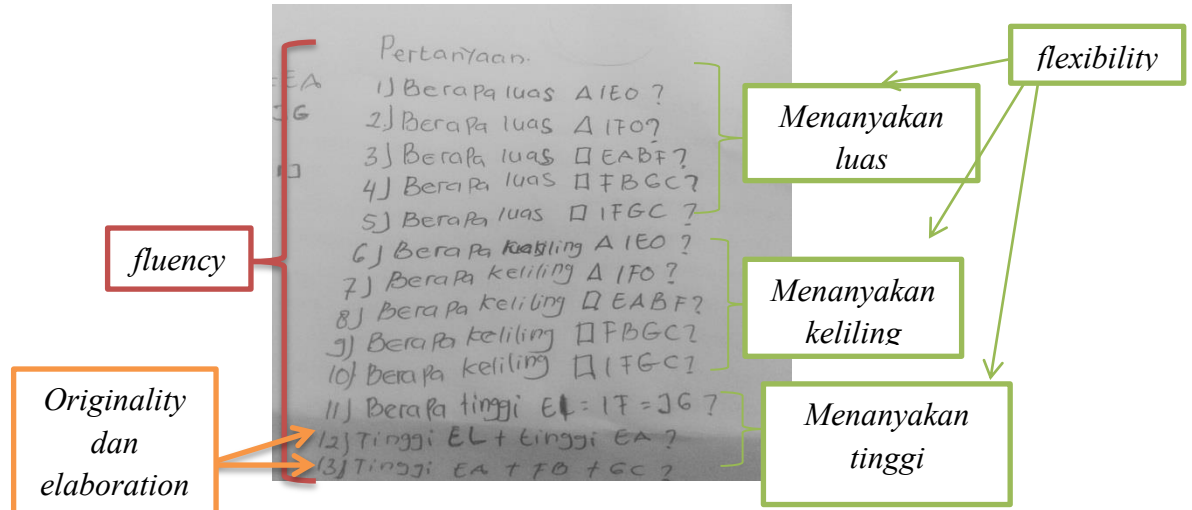 Pertanyaan.
EA
JG
1) Berapa luas △ IEO ?
2) Berapa luas △ IFO?
3) Berapa luas □ EABF?
4) Berapa luas □ FBGC?
5) Berapa luas □ IFGC ?
6) Berapa keliling △ IEO ?
7) Berapa keliling △ IFO ?
8) Berapa keliling □ EABF?
9) Berapa keliling □ FBGC?
10) Berapa keliling □ IFGC?
11) Berapa tinggi EL = IF = JG ?
12) Tinggi EL + tinggi EA ?
13) Tinggi EA + FB + GC ?
fluency
Originality
dan
elaboration
flexibility
Menanyakan
luas
Menanyakan
keliling
Menanyakan
tinggi